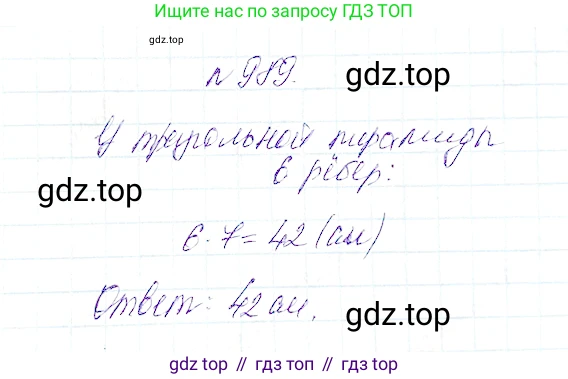 Ищите нас по запросу ГДЗ ТОП
gdz.top
№989.
gdz.top
У треугольной пирамиды
6 рёбер:
gdz.top
6·7=42 (см)
Ответ: 42 см.
gdz.top
gdz.top // гдз топ // гдз.топ